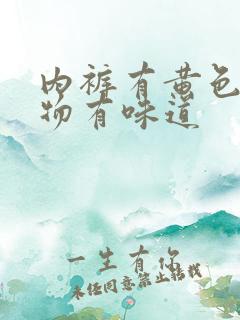 内裤有黄色
物有味道
一生有你
未经同意禁止转载